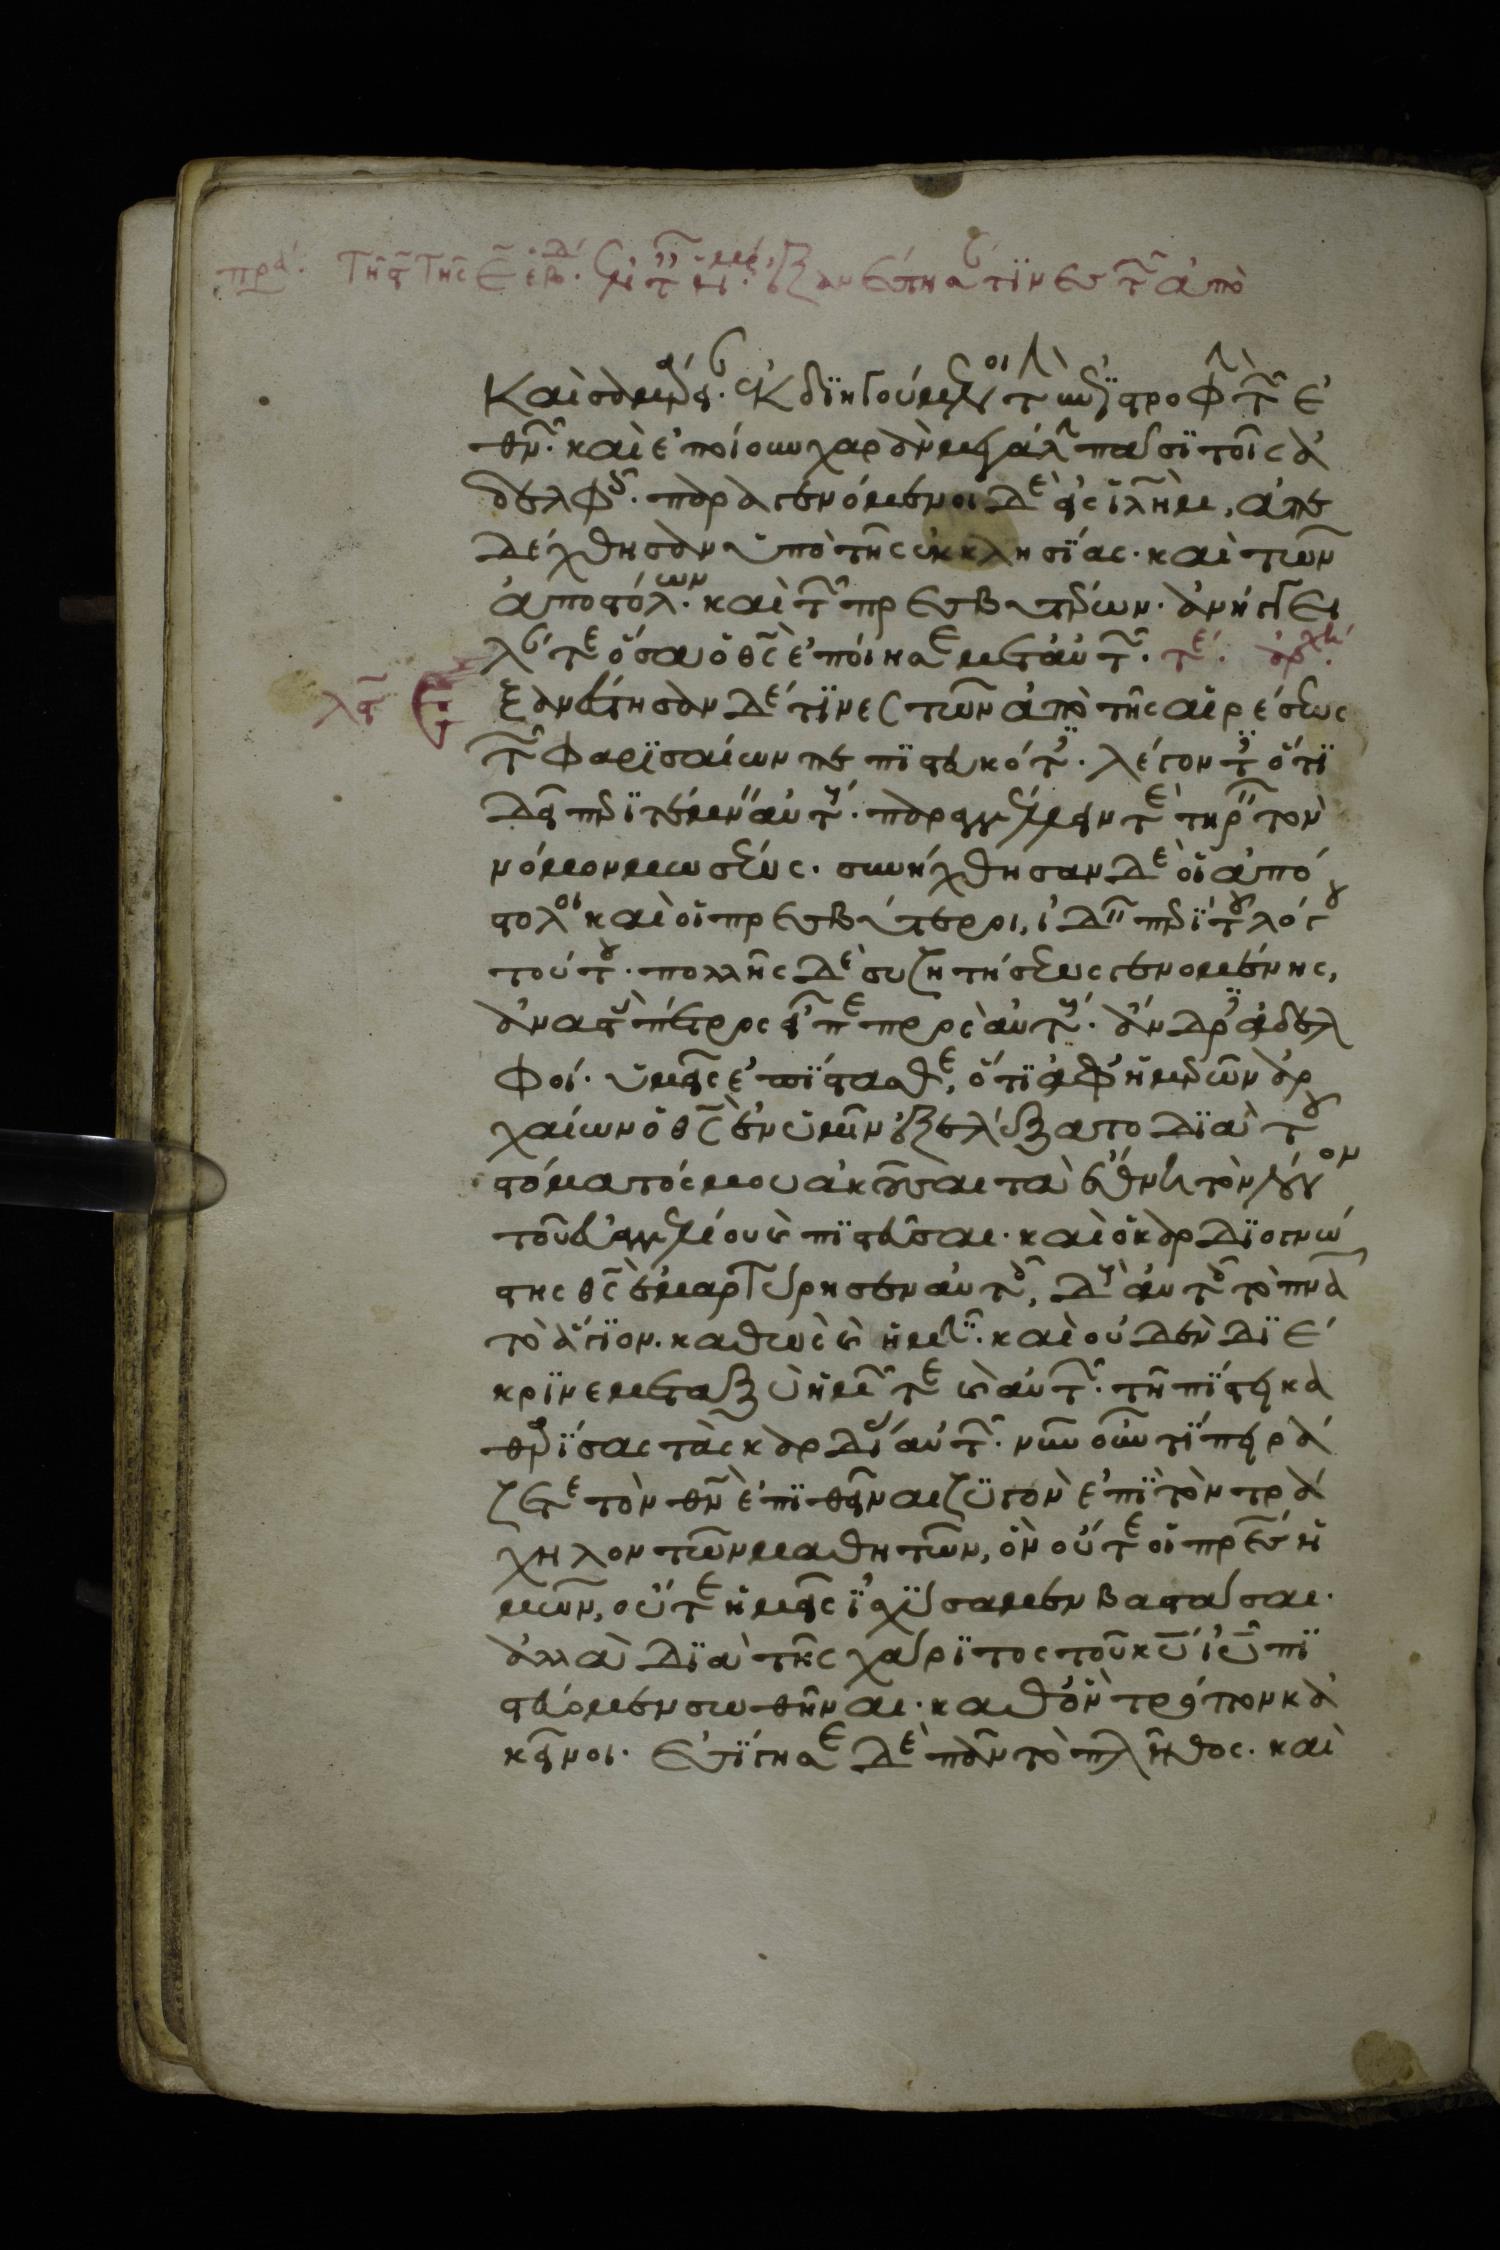 Καὶ σαμάρειαν· ἐκδιηγούμενοι τὴν ἐπιστροφὴν τῶν ἐ
θνῶν· καὶ ἐποίουν χαρὰν μεγάλην πᾶσι τοῖς ἀ
δελφοῖς· παραγενόμενοι δὲ εἰς ἱλημ, ἀπε
δέχθησαν ὑπὸ τῆς ἐκκλησίας· καὶ τῶν
ἀποστόλων· καὶ τῶν πρεσβυτέρων· ἀνήγγει
λάν τε ὅσα ὁ θς ἐποίησε μετ' αὐτῶν· τε
ξανέστησαν δέ τινες τῶν ἀπὸ τῆς αἱρέσεως
τῶν φαρισαίων πεπιστευκότες· λέγοντες ὅτι
δεῖ περιτέμνειν αὐτούς· παραγγέλλειν τὲ τηρεῖν τὸν
νόμον μωσέως· συνήχθησαν δὲ οἱ ἀπό
στολοι καὶ οἱ πρεσβύτεροι, ἰδεῖν περὶ τοῦ λόγου
τούτου· πολλῆς δὲ συζητήσεως γενομένης,
ἀναστὰς πέτρος εἶπε πρὸς αὐτούς· ἄνδρες ἀδελ
φοί· ὑμεῖς ἐπίστασθε, ὅτι ἀφ' ἡμερῶν ἀρ
χαίων ὁ θς ἐν ὑμῖν ἐξελέξατο διὰ τοῦ
στόματός μου ἀκοῦσαι τὰ ἔθνη τὸν λόγον
τοῦ εὐαγγελίου καὶ πιστεῦσαι· καὶ ὁ καρδιογνώ
στης θς ἐμαρτύρησεν αὐτοῖς, δοὺς αὐτοῖς τὸ πνα
τὸ ἅγιον· καθὼς καὶ ἡμῖν· καὶ οὐδὲν διέ
κρινε μεταξὺ ἡμῶν τε καὶ αὐτῶν· τῇ πίστει κα
θαρίσας τὰς καρδίας αὐτῶν· νῦν οὖν τί πειρά
ζετε τὸν θν ἐπιθεῖναι ζυγὸν ἐπὶ τὸν τρά
χηλον τῶν μαθητῶν, ὃν οὔτε οἱ πρες ἡ
μῶν, οὔτε ἡμεῖς ἰσχύσαμεν βαστάσαι·
ἀλλὰ διὰ τῆς χάριτος τοῦ κυ ιυ πι
στεύομεν σωθῆναι· καθ' ὃν τρόπον κἀ
κεῖνοι· ἐσίγησε δὲ πᾶν τὸ πλῆθος· καὶ